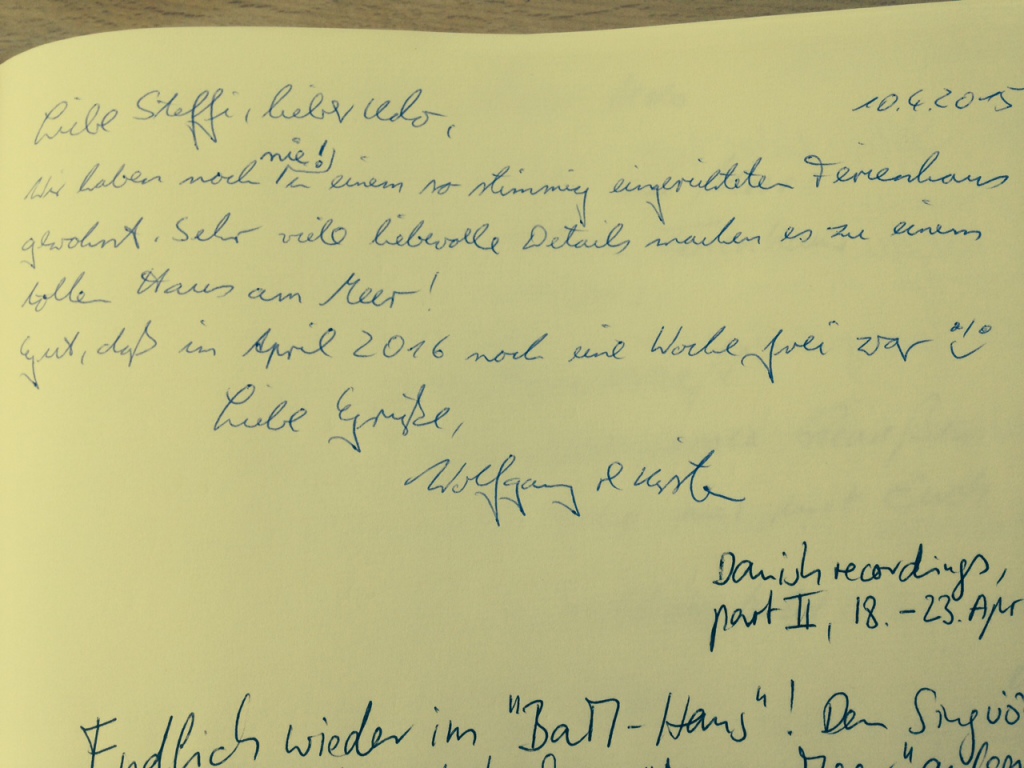 10.4.2015
Liebe Steffi, lieber Udo,
Wir haben noch nie! in einem so stimmig eingerichteten Ferienhaus
gewohnt. Sehr viele liebevolle Details machen es zu einem
tollen Haus am Meer!
Gut, daß in April 2016 noch eine Woche frei war
Liebe Grüße,
Wolfgang & Kirsten
Danish recordings,
part II, 18.-23. Apr
Endlich wieder im "BaTT-Haus"! Den